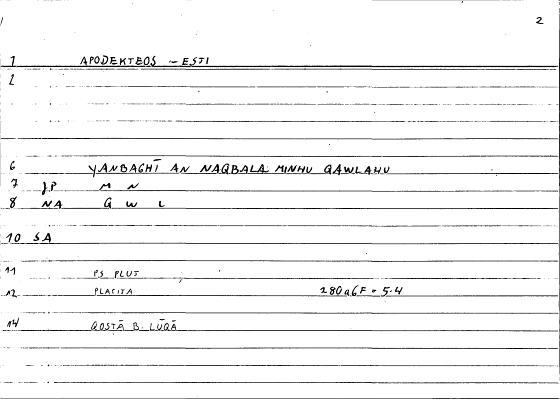 2
1 APODEKTEOS - ESTI
2
6 YANBAGHĪ AN NAQBALA MINHU QAWLAHU
7 JP M N
8 NA Q W L
10 SA
11 PS PLUT
12 PLACITA 280a6F = 5.4
14 QOSṬĀ B. LŪQĀ